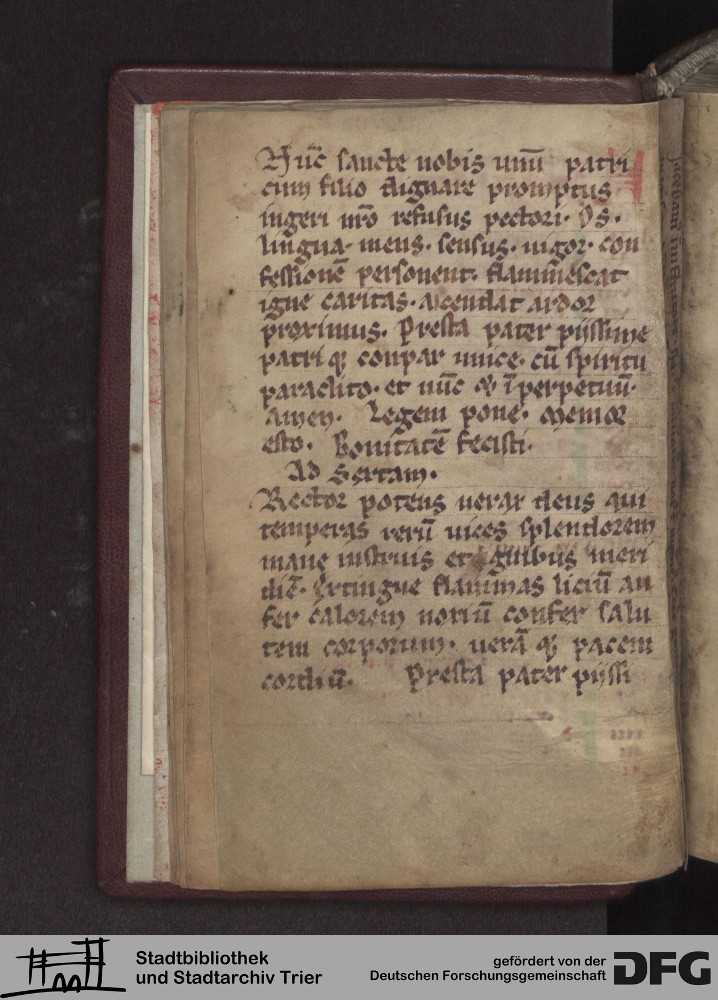 Nūc sancte nobis unū patri
cum filio dignare promptus
ingeri nr̄o refusus pectori· Os·
lingua· mens· sensus· uigor· con
fessionē personent· flam̄escat
igne caritas· accendat ardor
proximus· Presta pater pijssime
patri qꝫ conpar unice· cū spiritu
paraclito· et nūc ⁊ ī perpetuū·
amen· Legem pone· Memor
esto· Bonitatē fecisti·
Ad Sextam·
Rector potens uerax deus qui
temperas rerū uices splendorem
mane instruis et ignibus meri
diē· Extingue flam̄as litiū au
fer calorem noxiū confer salu
tem corporum· uerā qꝫ pacem
cordiū· Presta pater pijssi
Stadtbibliothek
und Stadtarchiv Trier
gefördert von der
Deutschen Forschungsgemeinschaft
DFG